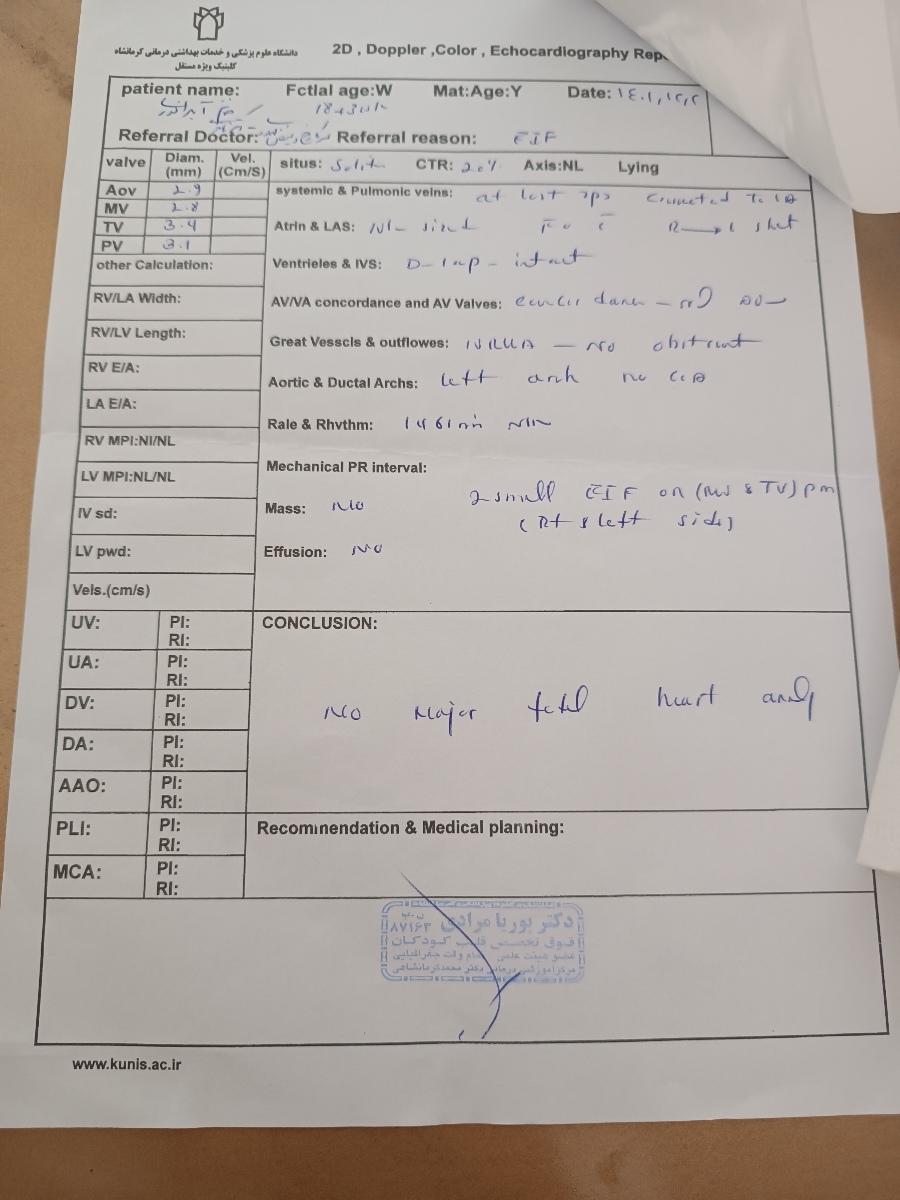 دانشگاه علوم پزشکی و خدمات بهداشتی درمانی کرمانشاه
کلینیک ویژه مستقل
2D , Doppler ,Color , Echocardiography Rep
patient name: Fctlal age:W Mat:Age:Y Date: ۱۴۰۱,۱۲,۲
Referral Doctor: Referral reason: EIF
valve Diam. (mm) Vel. (Cm/S) situs: Solitus CTR: 20% Axis:NL Lying
Aov 2.9
systemic & Pulmonic veins: at lest connected To LA
MV 2.8
TV 3.4
Atrin & LAS: Nl - sized R→L shnt
PV 3.1
other Calculation:
Ventrieles & IVS: D-lop - intact
RV/LA Width:
AV/VA concordance and AV Valves:
RV/LV Length:
Great Vesscls & outflowes: NRGA - No obstruct
RV E/A:
Aortic & Ductal Archs: left arch no CoA
LA E/A:
Rale & Rhvthm: 146/min
RV MPI:NI/NL
Mechanical PR interval:
LV MPI:NL/NL
2 small EIF on (MV & TV) pm
Mass: No
(Rt & left side)
IV sd:
Effusion: No
LV pwd:
Vels.(cm/s)
UV: PI:
RI:
CONCLUSION:
UA: PI:
RI:
DV: PI:
RI:
No major fetal heart anomaly
DA: PI:
RI:
AAO: PI:
RI:
PLI: PI:
RI:
Recomınendation & Medical planning:
MCA: PI:
RI:
دکتر پوریا مرادی
ن.پ ۸۷۱۶۳
فوق تخصص قلب کودکان
عضو هیئت علمی تمام وقت جغرافیایی
مرکز آموزشی درمانی دکتر محمد کرمانشاهی
www.kunis.ac.ir